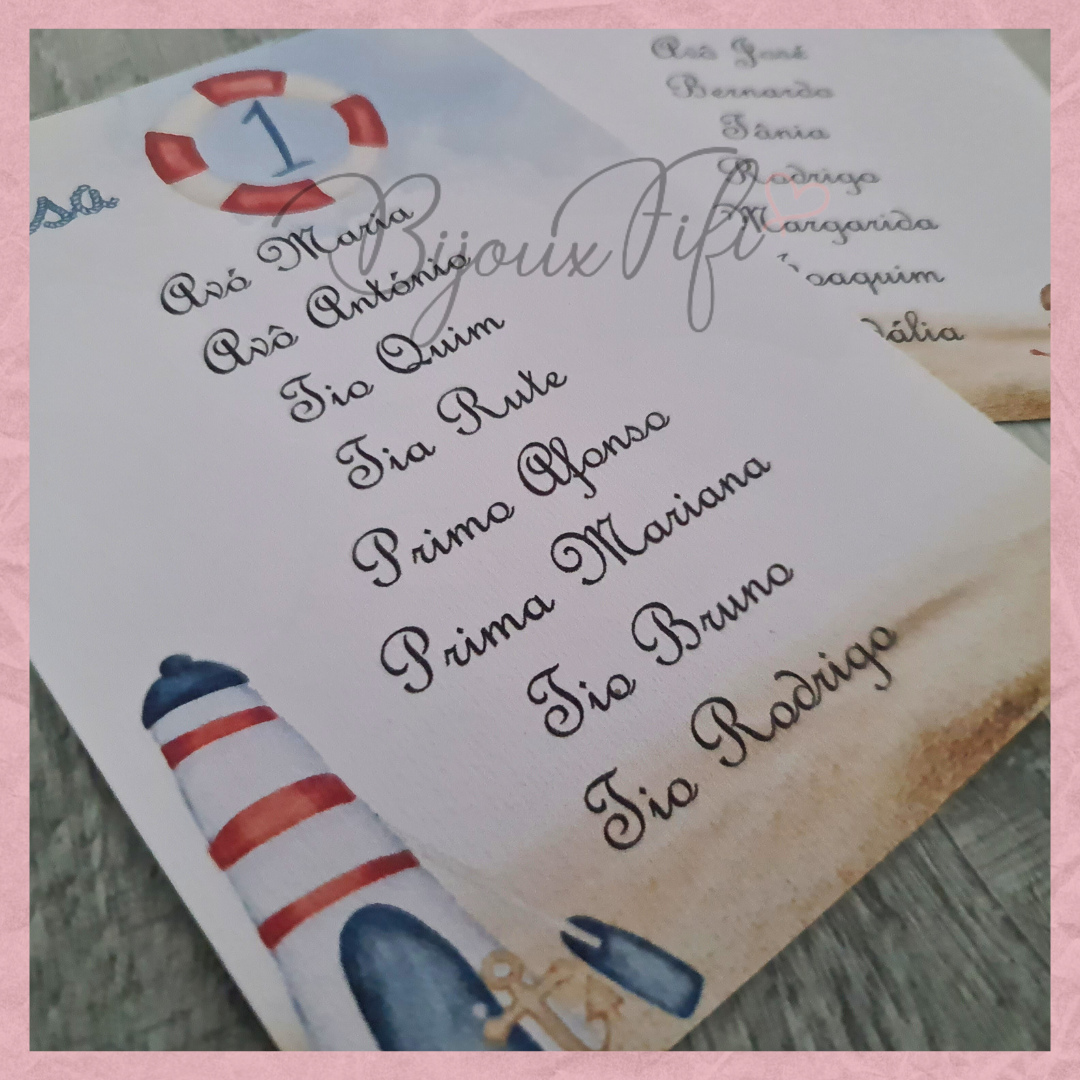 sa 1
Avó Maria
Avô António
Tio Quim
Tia Rute
Primo Afonso
Prima Mariana
Tio Bruno
Tio Rodrigo
Avô José
Bernardo
Tânia
Rodrigo
Margarida
oaquim
dália
BijouxFifi